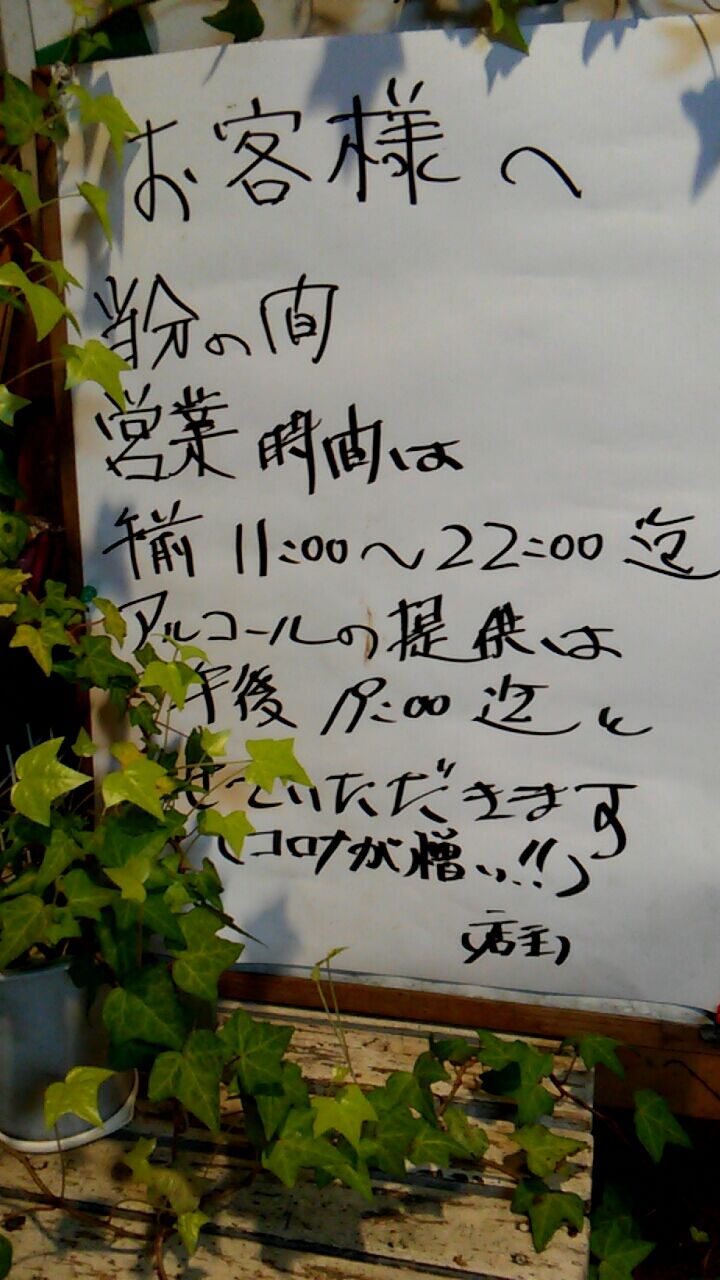 お客様へ
当分の間
営業時間は
午前11:00〜22:00迄
アルコールの提供は
午後19:00迄と
せていただきます
(コロナが憎い!!)
(店主)